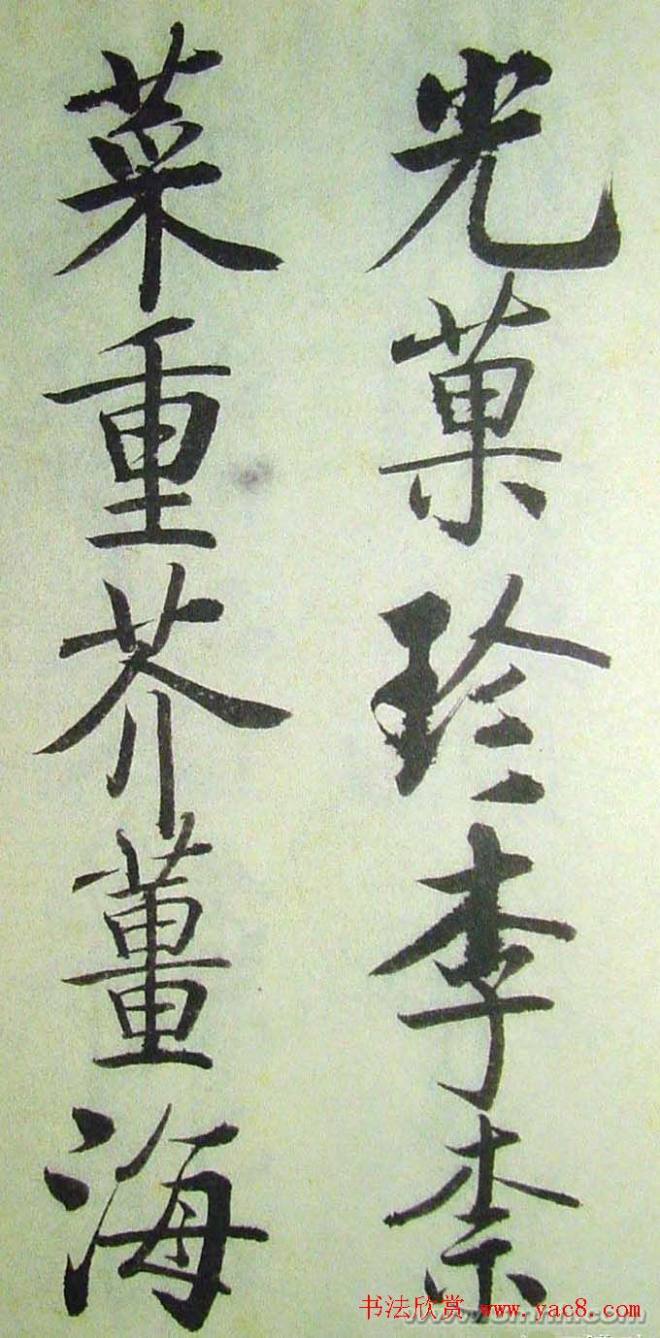 光菓珍李柰
菜重芥薑海
书法欣赏 www.yac8.com